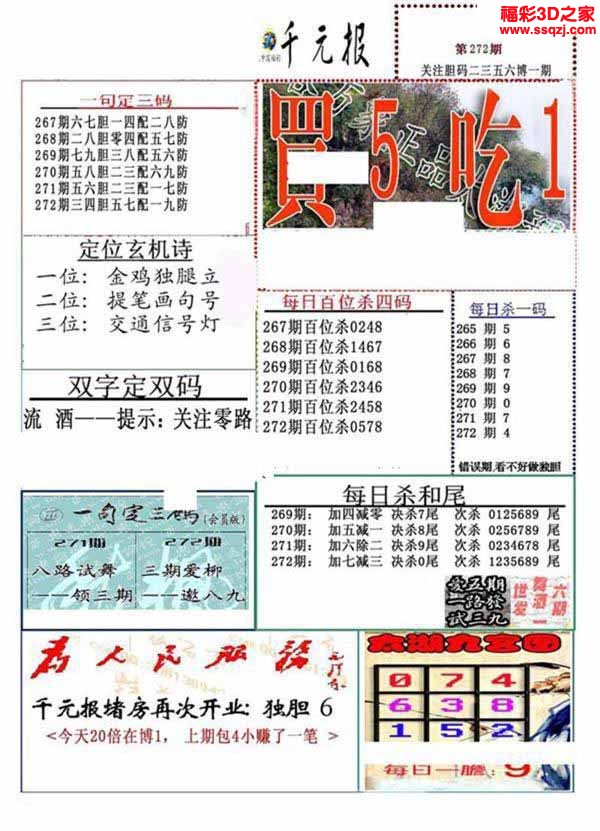 福彩3D之家
www.ssqzj.com
千元报
第272期
关注胆码二三五六博一期
一句定三码
267期六七胆一四配二八防
268期二八胆零四配五七防
269期七九胆三八配五六防
270期五八胆二三配六九防
271期五六胆二三配一七防
272期三四胆五七配一九防
買5吃1
定位玄机诗
一位：金鸡独腿立
二位：提笔画句号
三位：交通信号灯
双字定双码
流 酒——提示：关注零路
每日百位杀四码
267期百位杀0248
268期百位杀1467
269期百位杀0168
270期百位杀2346
271期百位杀2458
272期百位杀0578
每日杀一码
265 期 5
266 期 6
267 期 8
268 期 7
269 期 9
270 期 0
271 期 7
272 期 4
错误期,看不好做独胆
一句定三码(会员版)
271期
八路试舞
——领三期
272期
三期爱柳
——邀八九
每日杀和尾
269期： 加四减零 决杀7尾 次杀 0125689 尾
270期： 加五减一 决杀8尾 次杀 0256789 尾
271期： 加六除二 决杀9尾 次杀 0234678 尾
272期： 加七减三 决杀0尾 次杀 1235689 尾
爱五期
一路發
试三九
六期
舞酒一
世发
为人民服务
千元报堵房再次开业：独胆 6
<今天20倍在博1， 上期包4小赚了一笔 >
太湖九宫图
0 7 4
6 3 8
1 5 2
每日一膽：9